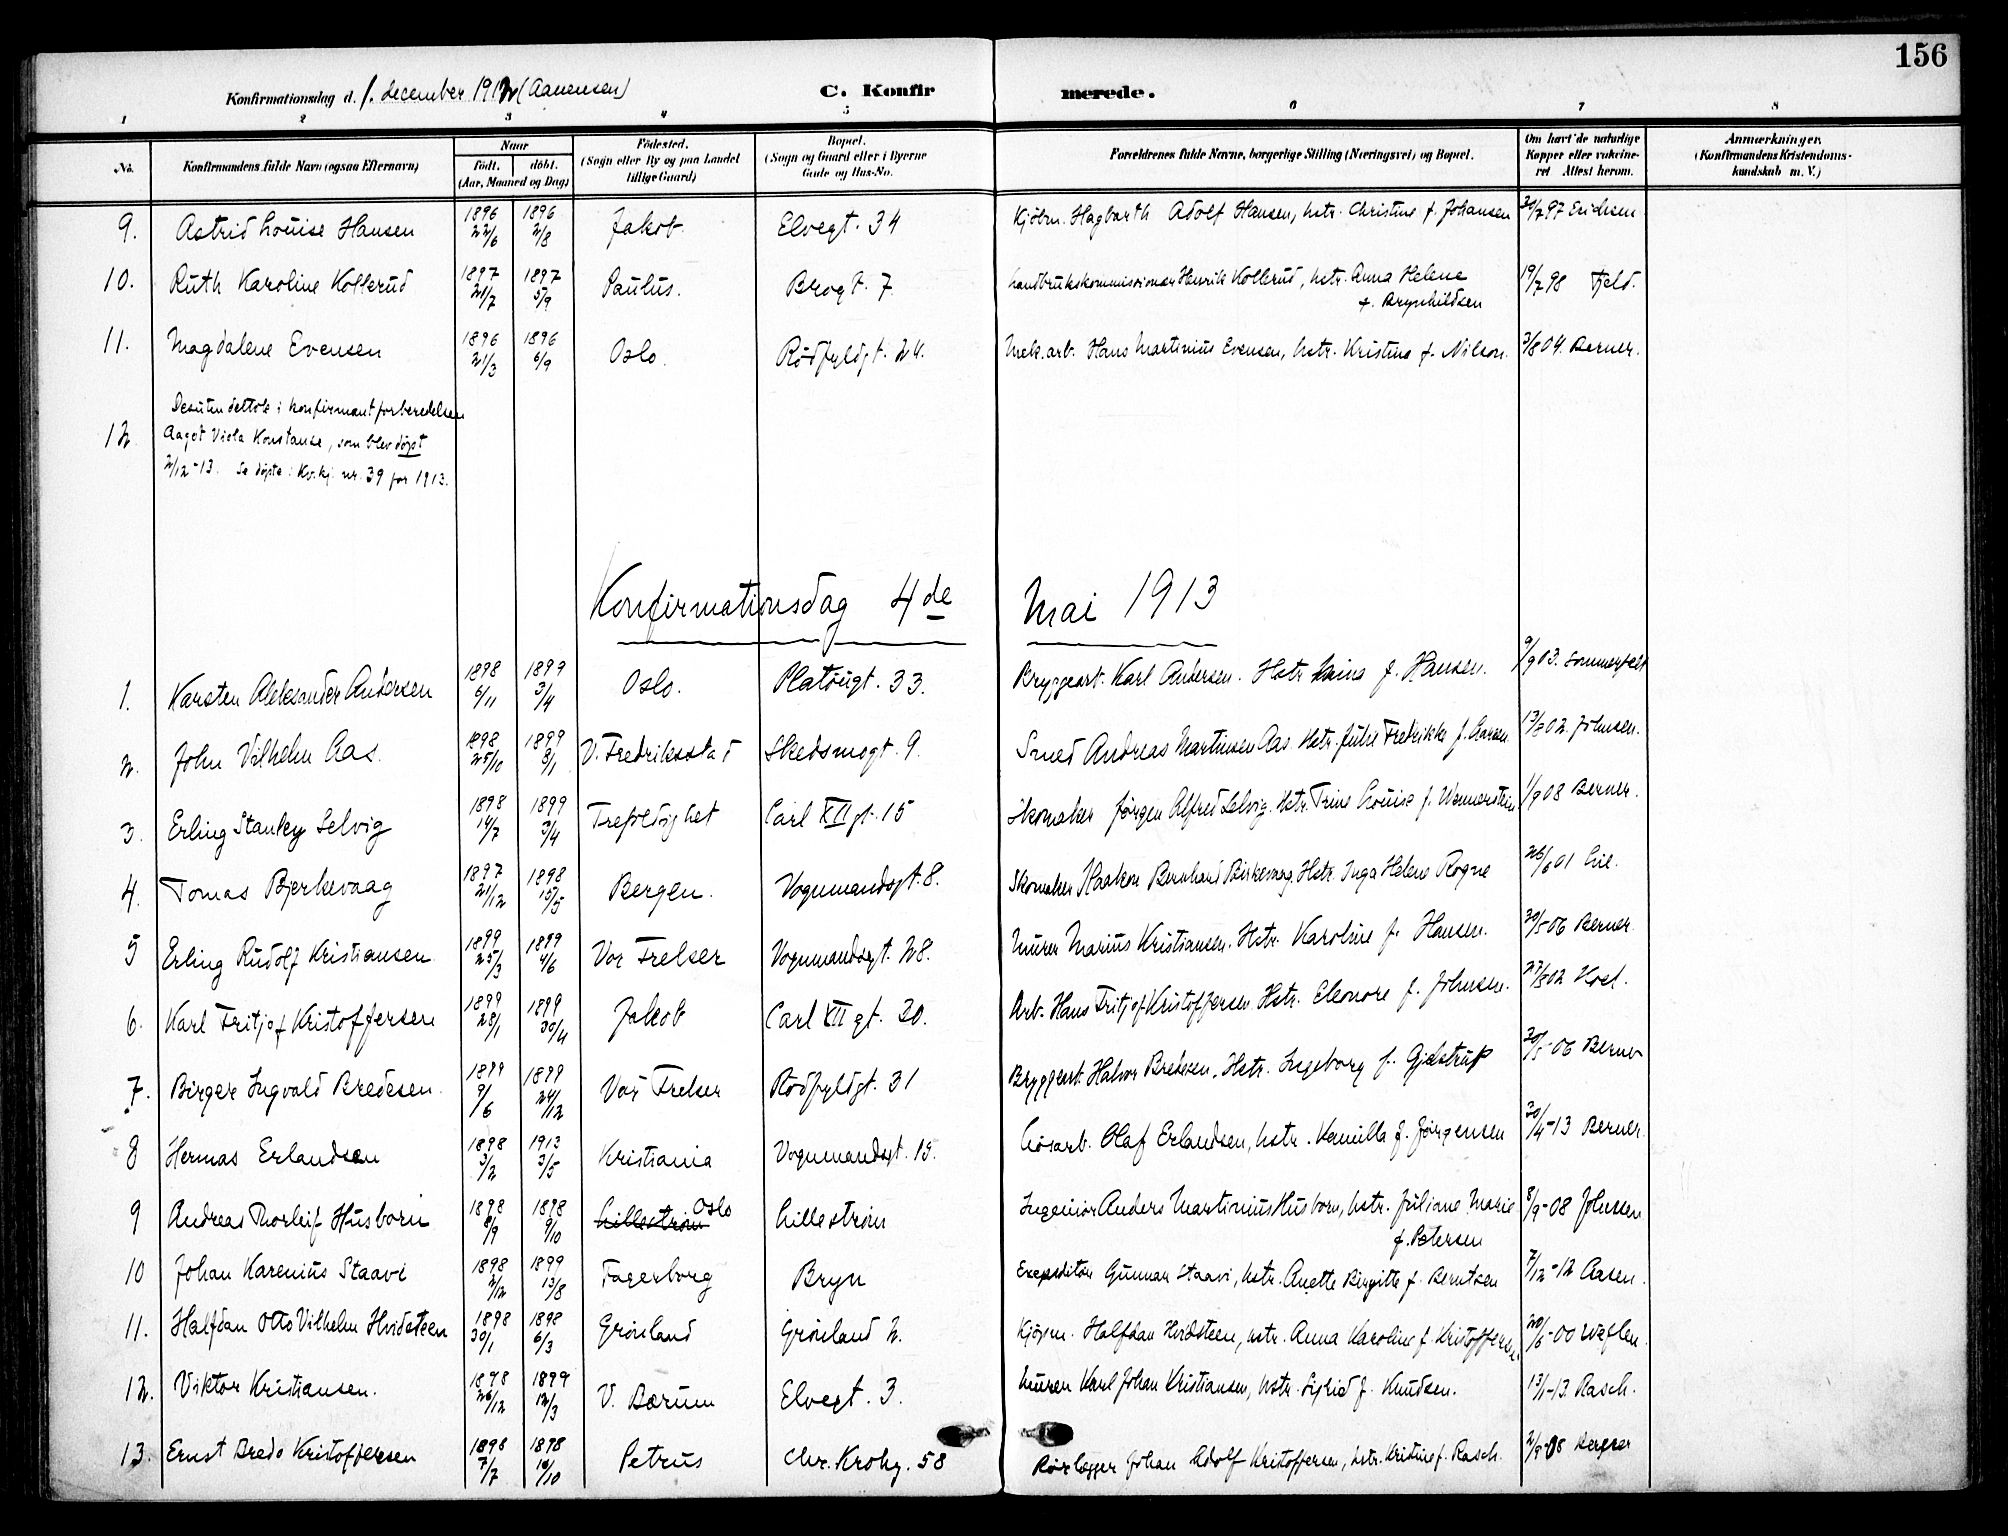 156
Konfirmationsdag d. 1. december 1912 (Aanensen) C. Konfirmerede.
1 2 3 4 5 6 7 8
No. Konfirmandens fulde Navn (ogsaa Efternavn) Naar født. døbt. (Aar, Maaned og Dag) Fødested. (Sogn eller By og paa Landet tillige Gaard) Bopæl. (Sogn og Gaard eller i Byerne Gade og Hus-No. Forældrenes fulde Navne, borgerlige Stilling (Næringsvei) og Bopæl. Om havt de naturlige Kopper eller vakcineret Attest herom. Anmærkninger. (Konfirmandens Kristendomskundskab m. V.)
9. Astrid Louise Hansen 1896 22/6 1896 2/8 Jakob. Elvegt. 34 Kjøbm. Hagbarth Adolf Hansen, hstr. Christine f. Johansen 30/7 97 Erichsen
10. Ruth Karoline Kollerud 1897 21/7 1897 5/9 Paulus. Brogt. 7 Landbrukskommissionær Henrik Kollerud, hstr. Anna Helene 19/7 98 Fjeld.
f. Brynhildsen
11. Magdalene Evensen 1896 21/3 1896 6/9 Oslo. Rødfyldgt. 24. Mek. arb. Hans Martinius Evensen, hstr. Kristine f. Nilsen. 3/8 04. Berner.
Desuten deltok i konfirmantforberedelsen
12. Aagot Viola Konstanse, som blev døpt
2/12-13. Se døpte: Kv.kj. nr. 39 for 1913.
Konfirmationsdag 4de Mai 1913
1. Karsten Aleksander Andersen 1898 6/11 1899 3/4 Oslo. Platougt. 33. Bryggearb. Karl Andersen. Hstr. Laina f. Hansen. 9/9 03. Sommerfelt
2. John Vilhelm Aas. 1898 25/10 1899 8/1 V. Fredriksstad Skedsmogt. 9. Smed Andreas Martinsen Aas. Hstr. Julie Fredrikke f. Aasen. 13/8 02. Johnsen.
3. Erling Stanley Selvig 1898 14/7 1899 3/4 Trefoldighet Carl XII gt. 15 Skomaker Jørgen Alfred Selvig. Hstr. Trine Louise f. Wennerstrøm 1/9 08 Berner.
4. Tomas Bjerkevaag 1897 21/12 1898 15/5 Bergen. Vognmandsgt. 8. Skomaker Haakon Bernhard Birkevaag. Hstr. Inga Helene Rogne 26/6 01 Lie.
5 Erling Rudolf Kristiansen. 1899 25/3 1899 4/6 Vor Frelser Vognmandsgt. 28. Murer Marius Kristiansen. Hstr. Karoline f. Hansen. 30/5 06 Berner.
6. Karl Fritjof Kristoffersen 1899 28/1 1899 30/4 Jakob Carl XII gt. 20. Arb. Hans Fritjof Kristoffersen Hstr. Eleonore f. Johnsen. 27/8 02 Koet.
7. Birger Ingvald Bredesen. 1899 9/6 1899 24/12 Vor Frelser Rødfyldgt. 31 Bryggearb. Halvor Bredesen. Hstr. Ingeborg f. Gjelstrup 30/5-06 Berner
8 Hermas Erlandsen 1898 3/2 1913 3/5 Kristiania Vognmandsgt. 15. Løsarb. Olaf Erlandsen, hstr. Kamilla f. Jørgensen 30/4-13 Berner.
9 Andreas Thorleif Husborn 1898 8/9 1898 9/10 Lillestrøm Oslo Lillestrøm Ingeniør Anders Martinius Husborn, hstr. Juliane Marie 8/9-08 Johnsen
f. Petersen
10 Johan Karenius Staavi 1898 2/12 1899 13/8 Fagerborg Bryn Expeditør Gunnar Staavi, hstr. Anette Birgitte f. Berntsen 7/12-12 Aasen.
11. Halfdan Otto Vilhelm Hvidsteen 1898 30/1 1898 6/3 Grønland Grønland 2. Kjøpm. Halfdan Hvidsteen, hstr. Anna Karoline f. Kristoffersen. 20/6-00
12. Viktor Kristiansen. 1898 26/12 1899 12/3 V. Bærum Elvegt. 3. Murer Karl Johan Kristiansen, hstr. Sigrid f. Knudsen. 13/1-13. Rasch.
13. Ernst Bredo Kristoffersen 1898 7/7 1898 16/10 Petrus Chr. Krohg. 58 Rørlægger Johan Adolf Kristoffersen, hstr. Kristine f. Rasch. 2/9-08 Berner